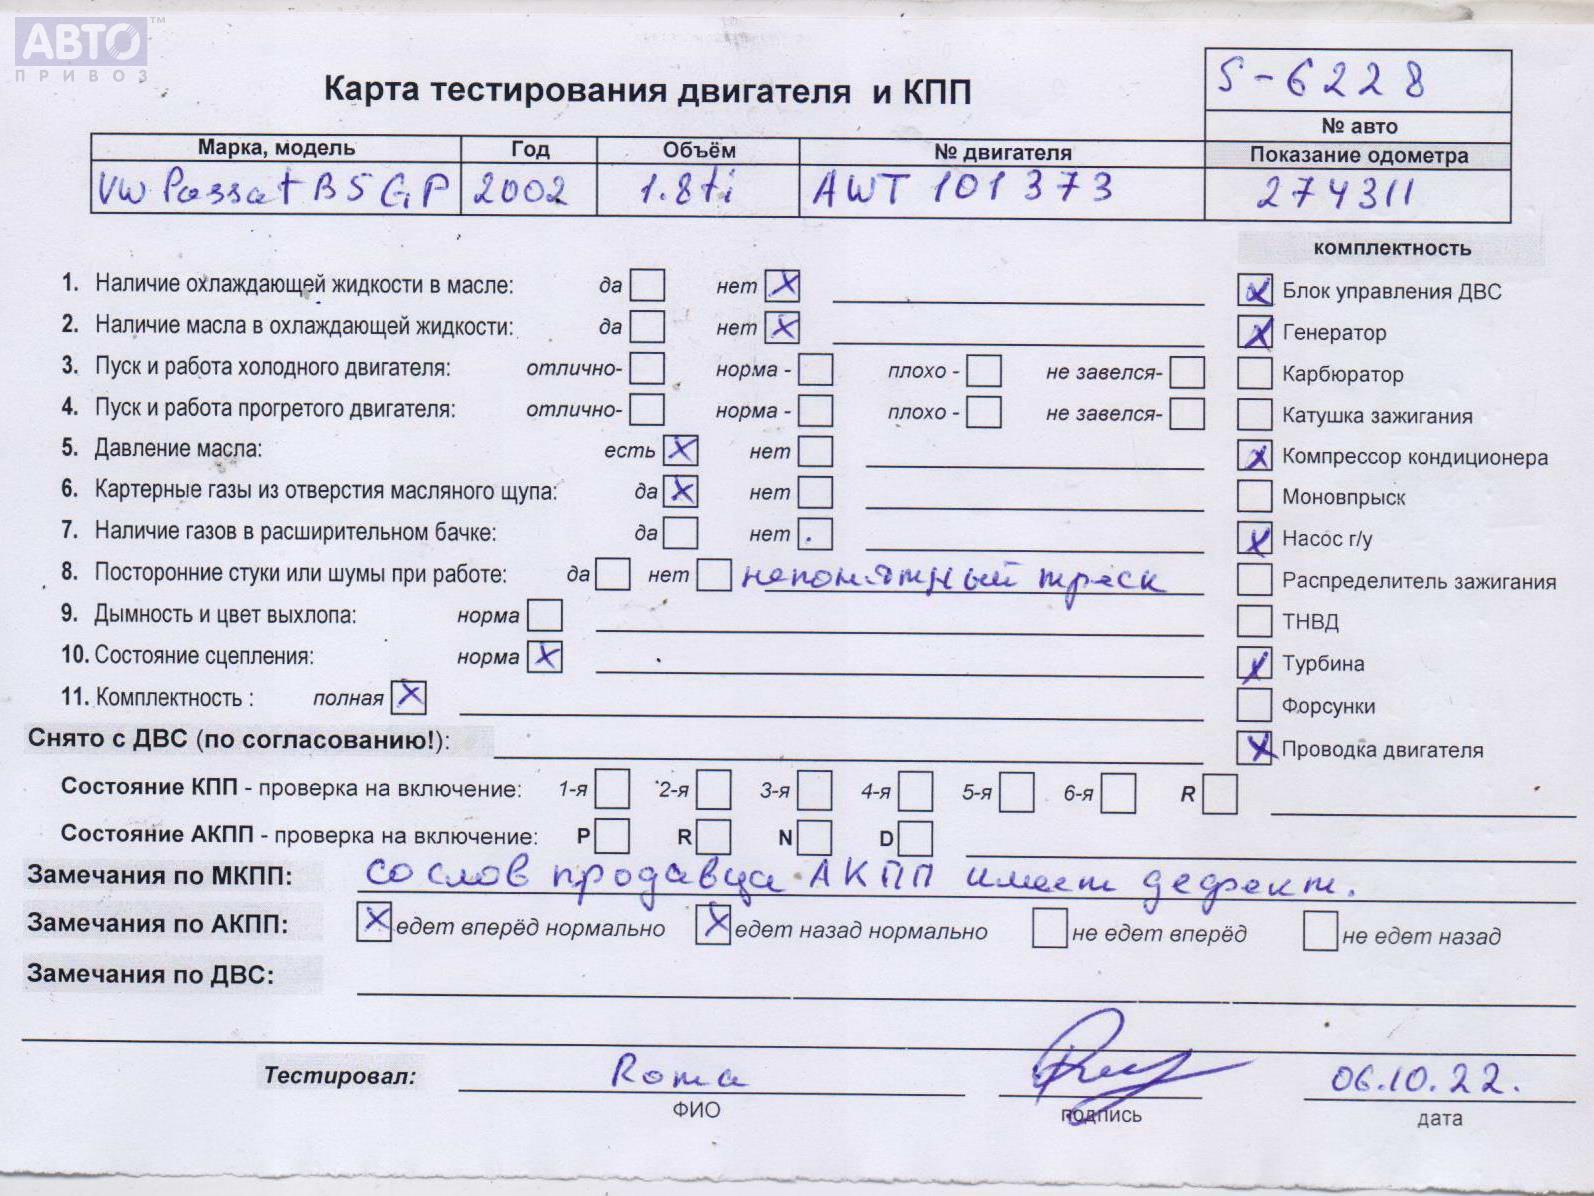 АВТО™
ПРИВОЗ
S-6228
Карта тестирования двигателя и КПП
№ авто
Марка, модель Год Объём № двигателя Показание одометра
VW Passat B5 GP 2002 1.8ti AWT 101373 274311
комплектность
1. Наличие охлаждающей жидкости в масле: да нет X
Блок управления ДВС
2. Наличие масла в охлаждающей жидкости: да нет X
Генератор
3. Пуск и работа холодного двигателя: отлично- норма - плохо - не завелся-
Карбюратор
4. Пуск и работа прогретого двигателя: отлично- норма - плохо - не завелся-
Катушка зажигания
5. Давление масла: есть X нет
Компрессор кондиционера
6. Картерные газы из отверстия масляного щупа: да X нет
Моновпрыск
7. Наличие газов в расширительном бачке: да нет
Насос г/у
8. Посторонние стуки или шумы при работе: да нет непонятный треск
Распределитель зажигания
9. Дымность и цвет выхлопа: норма
ТНВД
10. Состояние сцепления: норма X
Турбина
11. Комплектность : полная X
Форсунки
Снято с ДВС (по согласованию!):
Проводка двигателя
Состояние КПП - проверка на включение: 1-я 2-я 3-я 4-я 5-я 6-я R
Состояние АКПП - проверка на включение: P R N D
Замечания по МКПП: со слов продавца АКПП имеет дефект.
Замечания по АКПП: X едет вперёд нормально X едет назад нормально не едет вперёд не едет назад
Замечания по ДВС:
Тестировал: Roma 06.10.22.
ФИО подпись дата